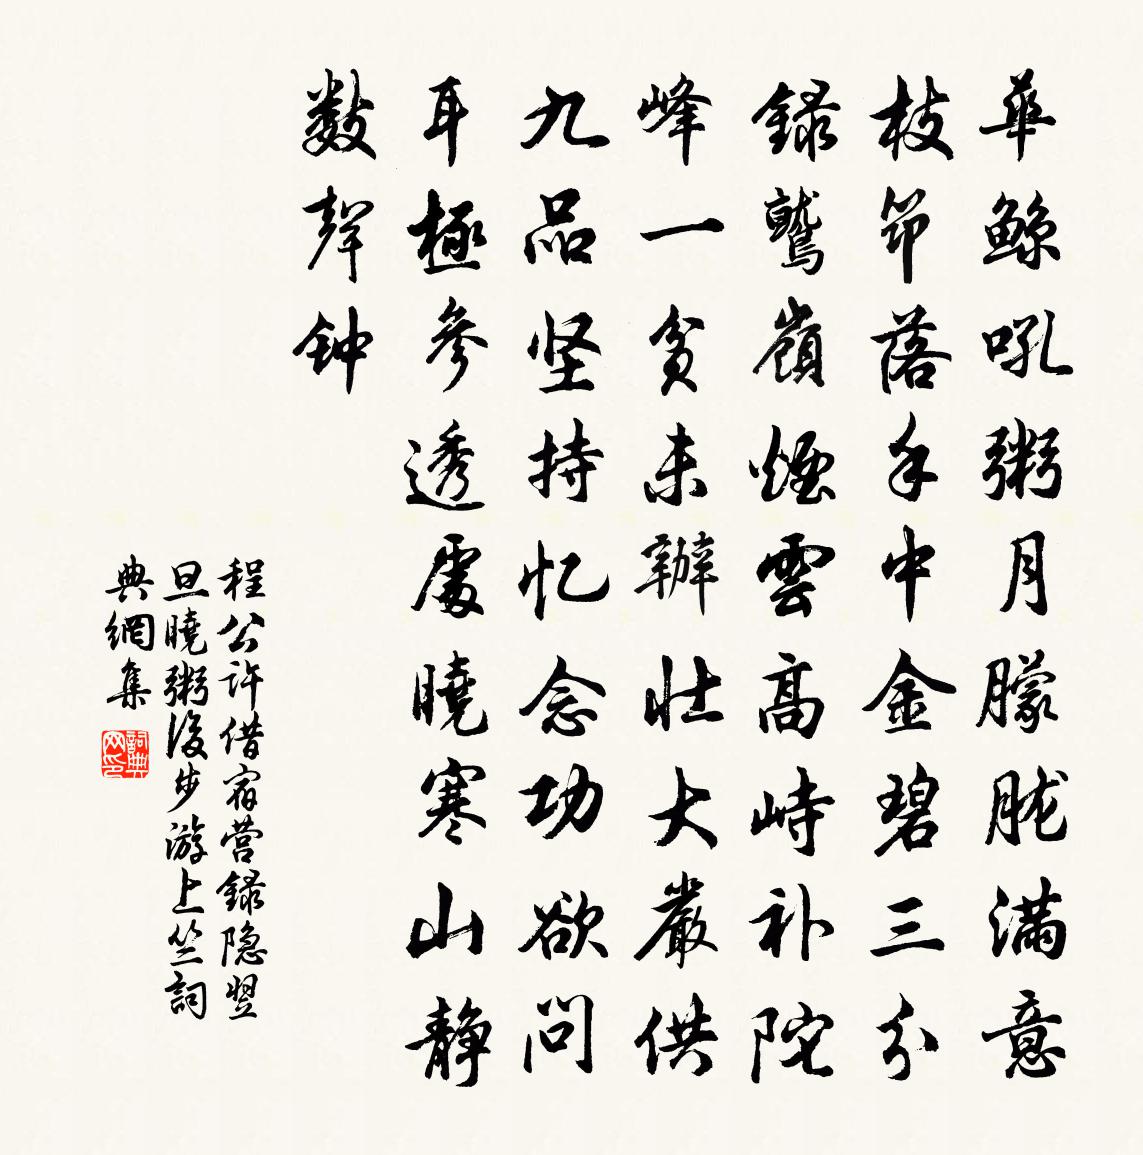 華鲸吼粥月朦胧满意
枝笻落手中金碧三分
録鷲嶺煙雲高峙补陀
峰一贫未辦壮大嚴供
九品坚持忆念功欲问
耳極參透處曉寒山静
数聲钟
程公许借宿营録隐翌
旦曉粥後步游上竺詞
典網集
詞典网